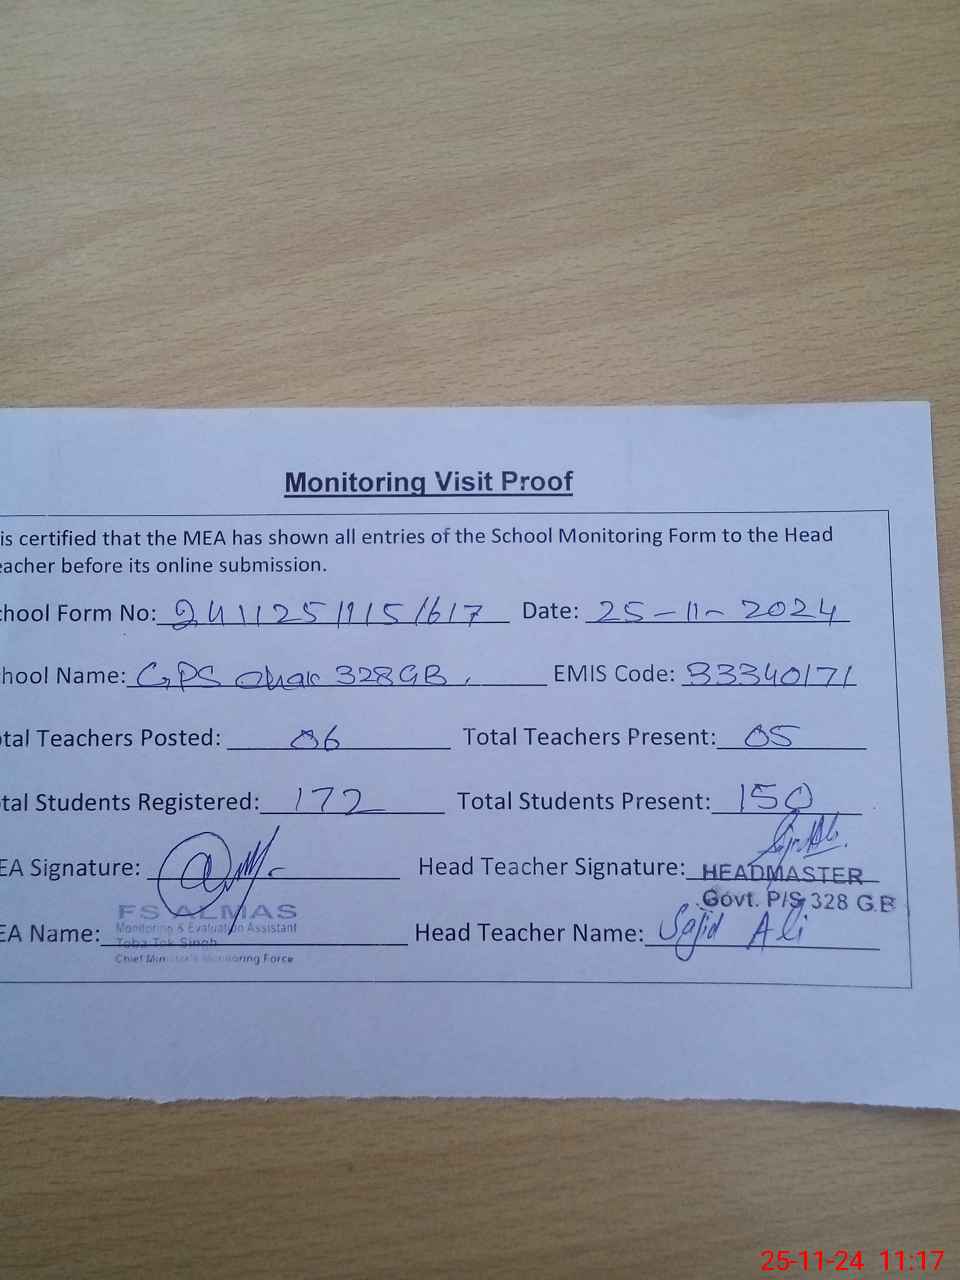 Monitoring Visit Proof
is certified that the MEA has shown all entries of the School Monitoring Form to the Head
eacher before its online submission.
chool Form No: 241125/115/617 Date: 25-11-2024
hool Name: GPS chak 328GB EMIS Code: 33340171
tal Teachers Posted: 06 Total Teachers Present: 05
tal Students Registered: 172 Total Students Present: 150
EA Signature: Head Teacher Signature:
HEADMASTER
Govt. P/S 328 G.B
FS ALMAS
Monitoring & Evaluation Assistant
Toba Tek Singh
Chief Minister's Monitoring Force
EA Name: Head Teacher Name: Sajid Ali
25-11-24 11:17